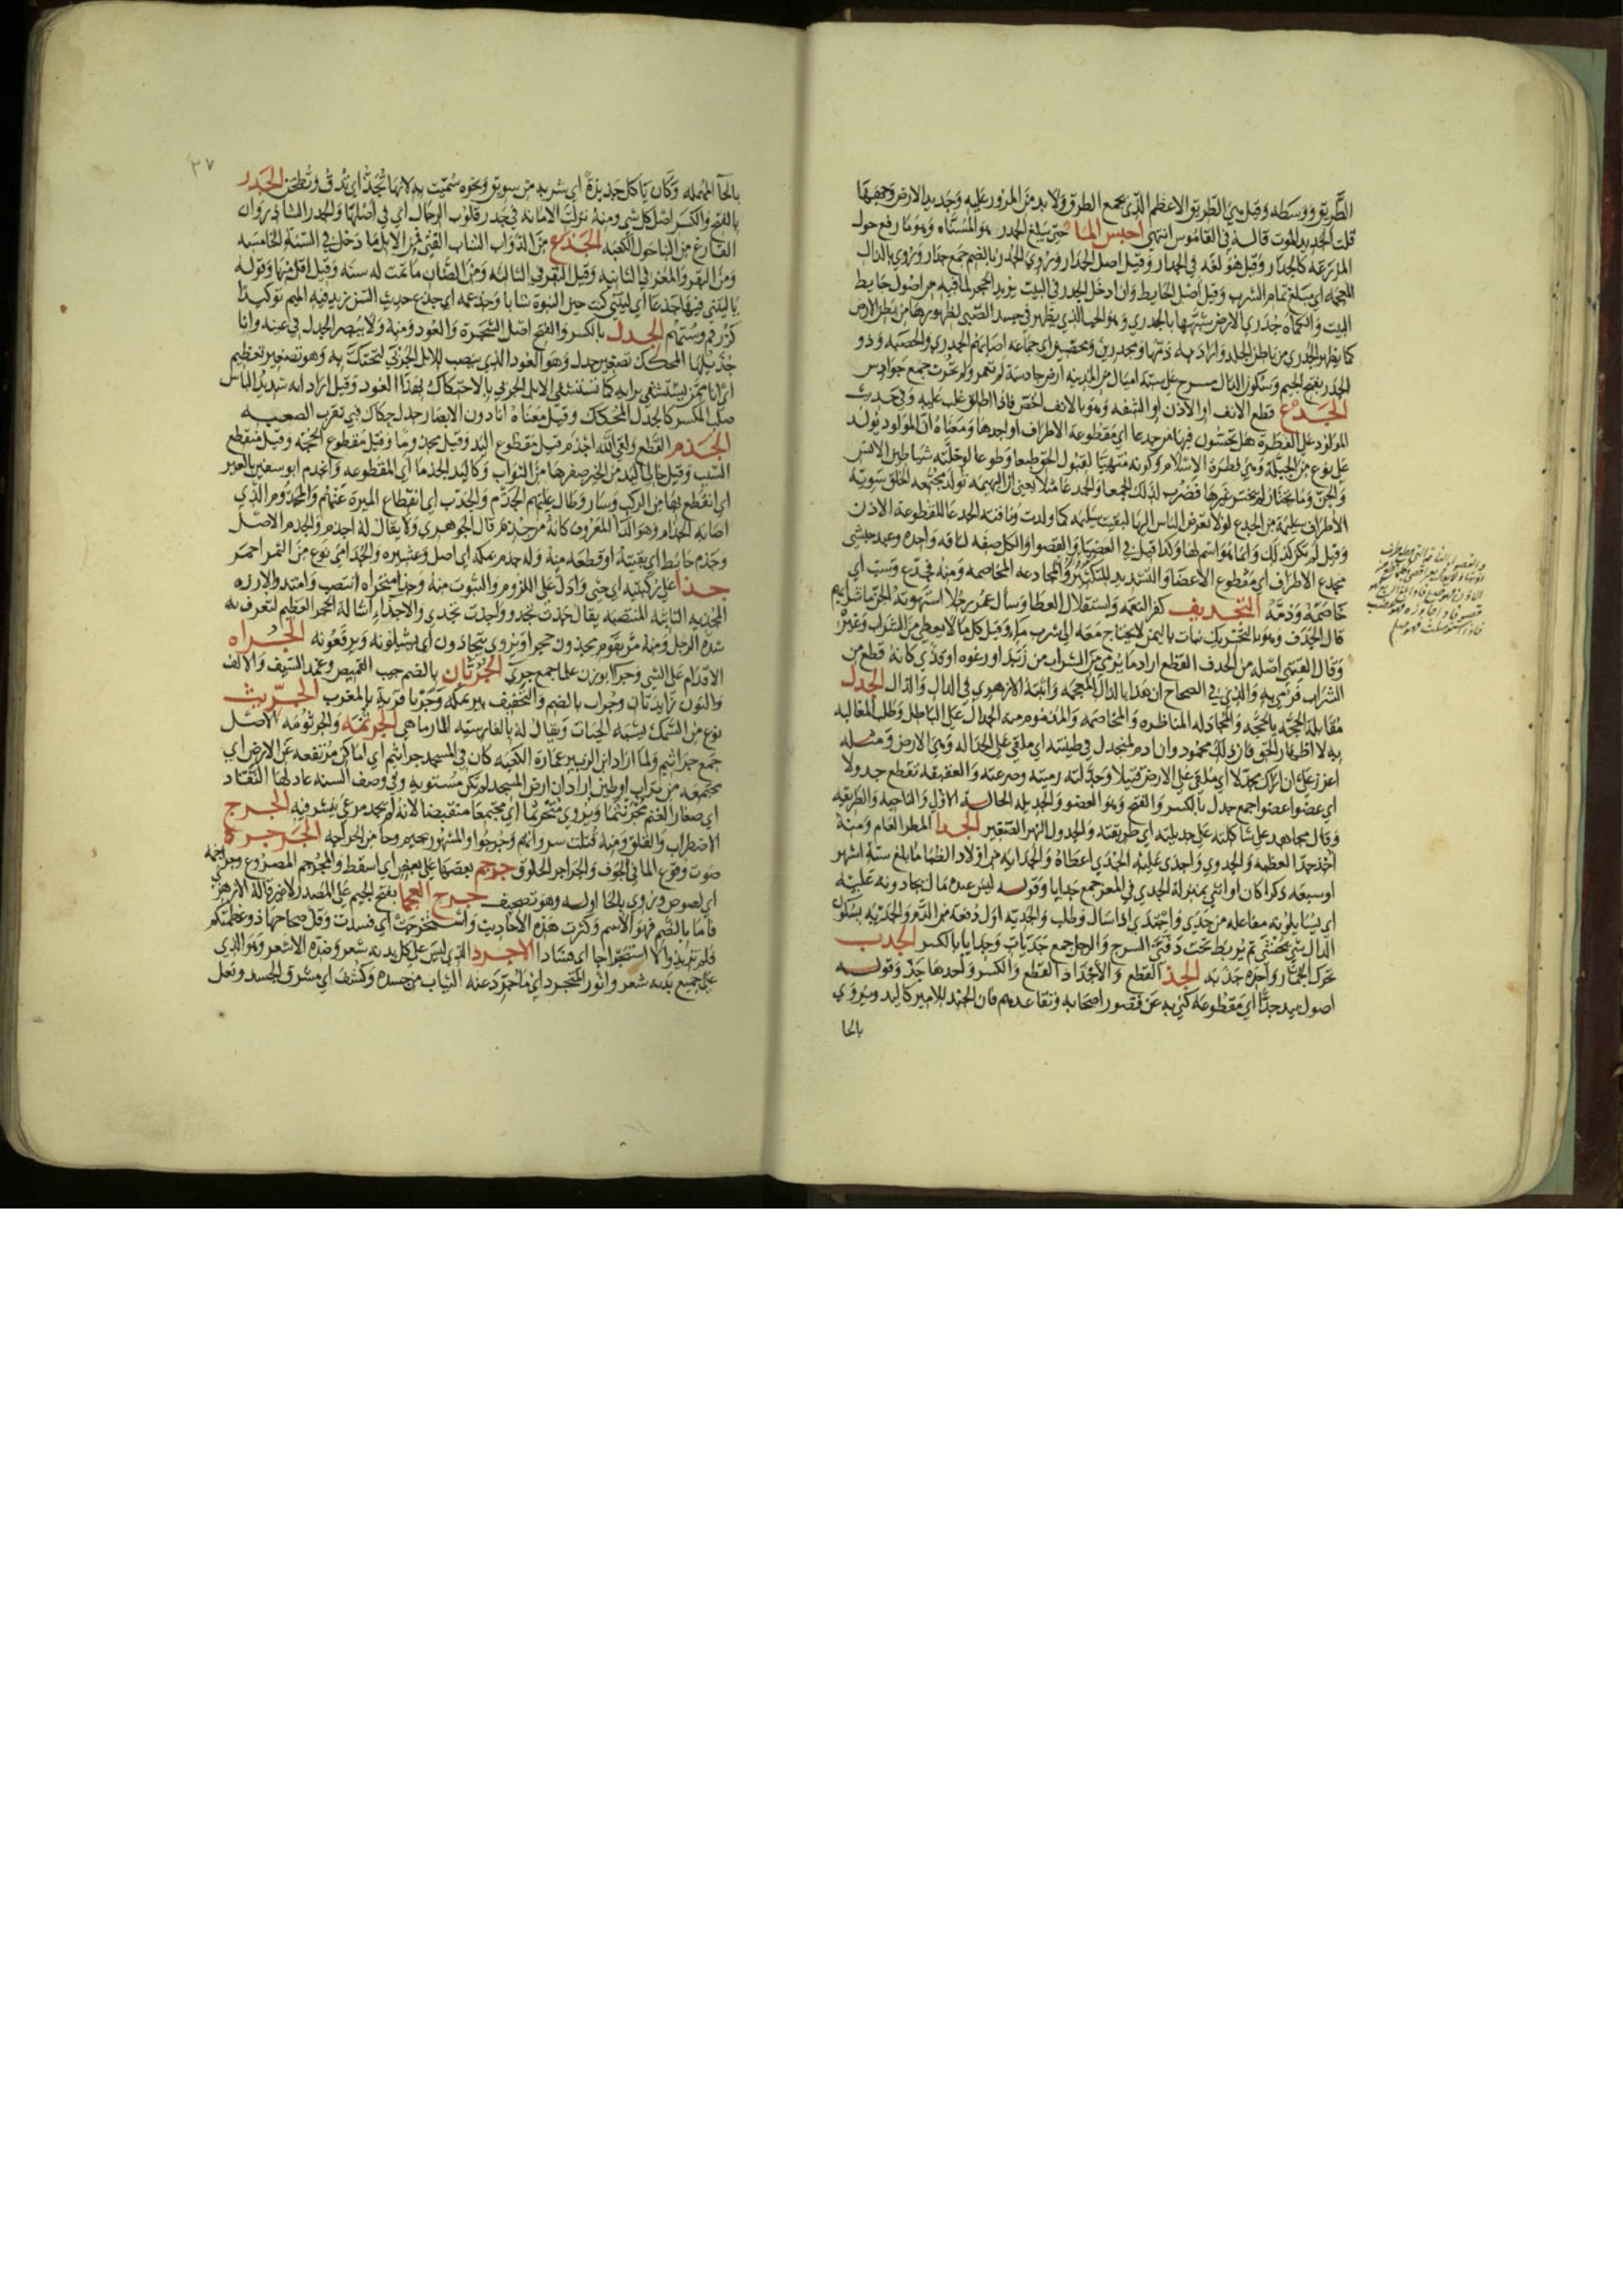 الطريق ووسطه وقيل هي الطريق الاعظم الذي يجمع الطرق ولا بد من المرور عليه وجديد الارض وجهها
قلت الجديد الموت قاله في القاموس انتهى احبس الما حتى يبلغ الجدر هو المسناه وهو ما رفع حول
المزرعه كالجدار وقيل هو لغه في الجدار وقيل اصل الجدار وروي الجدر بالضم جمع جدار وروي بالذال
المعجمه اي مبلغ تمام الشرب وقيل اصل الحايط وان ادخل الجدر في البيت يريد الحجر لما فيه من اصول حايط
البيت والكماه جدري الارض شبهها بالجدري وهو الحب الذي يظهر في جسد الصبي لظهورها من بطن الارض
كما يظهر الجدري من باطن الجلد واراد به ذمها ومجدرين ومحصبين اي جماعه اصابهم الجدري والحصبه وذو
الجدر بفتح الجيم وسكون الدال مسرح على سته اميال من المدينه ارض جادسه لم تعمر ولم تحرث جمع جوادس
الجدع قطع الانف او الاذن او الشفه وهو بالانف اخص فاذا اطلق غلب عليه وفي حديث
المولود على الفطره هل تحسون فيها من جدعا اي مقطوعه الاطراف او احدها ومعناه ان المولود يولد
على نوع من الجبله وهي فطره الاسلام وكونه متهيا لقبول الحق طبعا وطوعا لو خلته شياطين الانس
والجن وما يختار لم يختر غيرها فضرب لذلك الجمعا والجدعا مثلا يعني ان البهيمه تولد مجتمعه الخلق سوية
الاطراف سليمه من الجدع لولا تعرض الناس اليها لبقيت سليمه كما ولدت وناقته الجدعا المقطوعه الاذن
وقيل لم تكن كذلك وانما هو اسم لها وكذا قيل في العضبا والقصوا والكل صفه لناقه واحده وعبد حبشي
مجدع الاطراف اي مقطوع الاعضا والتشديد للتكثير والمجادعه المخاصمه ومنه فجدع وسب اي
خاصمه وذمه التجديف كفر النعمه واستقلال العطا وسأل عمر رجلا استهوته الجن ما شرابهم
قال الجدف وهو بالتحريك نبات باليمن لا يحتاج معه الى شرب ماء وقيل كل ما لا يغطى من الشراب وغيره
وقال القتبي اصله من الجدف القطع اراد ما يرمى من الشراب من زبد او رغوه او قذى كانه قطع من
الشراب فرمي به والذي في الصحاح ان هذا بالذال المعجمه واثبته الازهري في الدال والذال الجدل
مقابلة الحجه بالحجه والمجادله المناظره والمخاصمه والمذموم منه الجدال على الباطل وطلب المغالبه
به لا اظهار الحق فان ذلك محمود وان ادم لمنجدل في طينته اي ملقى على الجداله وهي الارض ومثله
اعزز علي ان اراك مجدلا اي ملقى على الارض قتيلا وجدلته رميته وصرعته والعقيقه تقطع جدولا
اي عضوا عضوا جمع جدل بالكسر والفتح وهو العضو والجديله الحاله الاولى والناحيه والطريقه
وقال مجاهد على شاكلته على جديلته اي طريقته والجدول النهر الصغير الجدا المطر العام ومنه
اخذ جدا العطيه والجدوى واجدى عليه الجدي اعطاه والجدايه من اولاد الظبا ما بلغ ستة اشهر
او سبعه ذكرا كان او انثى بمنزلة الجدي في المعز جمع جدايا وقوله ليس عبده مالك يجادونه عليه
اي يسايلونه مفاعله من جدي واجتدى اذا سال وطلب والجديه اول دفعه من الدم والجديه بسكون
الدال شي يحشى ثم يربط تحت دفتي السرج والرحل جمع جديات وجدايا بالكسر الجذب
محرك الجمار واحده جذبه الجذ القطع والاجذاذ القطع والكسر واحدها جذ وقوله
اصول بيد جذا اي مقطوعه كنى به عن قصور اصحابه وتقاعدهم فان الجند للامير كاليد ويروي
بالحا
٣٧
بالحآ المهمله وكان ياكل جذيذة اي شربه من سويق ونحوه سميت به لانها تجذ اي تدق وتطحن الجذر
بالفتح والكسر اصل كل شي ومنه نزلت الامانه في جذر قلوب الرجال اي في اصلها والجذر الشاذروان
الفارغ من البنا حول الكعبه الجذع من الدواب الشاب الفتي فمن الابل ما دخل في السنة الخامسه
ومن البقر والمعز في الثانيه وقيل البقر في الثالثه ومن الضان ما تمت له سنه وقيل اقل منها وقوله
يا ليتني فيها جذعا اي ليتني كنت حين النبوة شابا وجذعمه اي جذع حديث السن زيد فيه الميم توكيدا
كزرقم وستهم الجذل بالكسر والفتح اصل الشجرة والعود ومنه ولا يبصر الجذل في عينه وانا
جذيلها المحكك تصغير جذل وهو العود الذي ينصب للابل الجربى لتحتك به وهو تصغير تعظيم
اي انا ممن يستشفى برايه كما تستشفي الابل الجربى بالاحتكاك بهذا العود وقيل اراد انه شديد الباس
صلب المكسر كالجذل المحكك وقيل معناه انا دون الانصار جذل حكاك فبي تقرن الصعبه
الجذم القطع ولقي الله اجذم قيل مقطوع اليد وقيل مجذوما وقيل مقطوع الحجه وقيل منقطع
السبب وقيل خالي اليد من الخير صفرها من الثواب وكاليد الجذما اي المقطوعه وانجذم ابو سفين بالعير
اي انقطع بها من الركب وسار وطال عليهم الجذم والجذب اي انقطاع الميره عنهم والمجذوم الذي
اصابه الجذام وهو الدا المعروف كانه من جذم قال الجوهري ولا يقال له اجذم والجذم الاصل
وجذم حايط اي بقيته او قطعه منه وله جذم بمكه اي اصل وعشيره والجذامي نوع من التمر احمر
جذا على ركبتيه اي جثى وادل على اللزوم والثبوت منه وجذا منخراه انتصب وامتد والارزه
المجذيه الثابته المنتصبه يقال جذت تجذو واجذت تجذي والاجذاء اشالة الحجر العظيم لتعرف به
شده الرجل ومنه مر بقوم يجذون حجرا ويروي يتجاذون اي يشيلونه ويرفعونه الجراه
الاقدام على الشي وجرآ بوزن علما جمع جري الجربان بالضم جيب القميص وغمد السيف والالف
والنون زايدتان وجراب بالضم والتخفيف بير بمكه وجربا قرية بالمغرب الجريث
نوع من السمك يشبه الحيات ويقال له بالفارسيه المارماهي الجرثمه والجرثومه الاصل
جمع جراثيم ولما اراد ابن الزبير عمارة الكعبه كان في المسجد جراثيم اي اماكن مرتفعه عن الارض اي
مجتمعه من تراب او طين اراد ان ارض المسجد لم تكن مستويه وفي وصف السنه عاد لها النقاد
اي صغار الغنم مجرنثما ويروى متجرثما اي مجتمعا منقبضا لانه لم يجد مرعى ينتشر فيه الجرج
الاضطراب والقلق ومنه قتلت سرواتهم وجرجوا والمشهور بجيم وحا من الجراحه الجرجرة
صوت وقوع الما في الجوف والجراجر الحلوق جرجم بعضها على بعض اي اسقط والمجرجم المصروع وجراجمه
اي لصوص وروي بالحا اوله وهو تصحيف جرح العجما بفتح الجيم على المصدر لا غير قاله الازهري
فاما بالضم فهو الاسم وكثرت هذه الاحاديث واستجرحت اي فسدت وقل صحاحها ووعظتكم
فلم تزيدوا الا استجراحا اي فسادا الاجرد الذي ليس على كل بدنه شعر وضده الاشعر وهو الذي
على جميع بدنه شعر وانور المتجرد اي ما جرد عنه الثياب من جسده وكشف اي مشرق الجسد ونعل